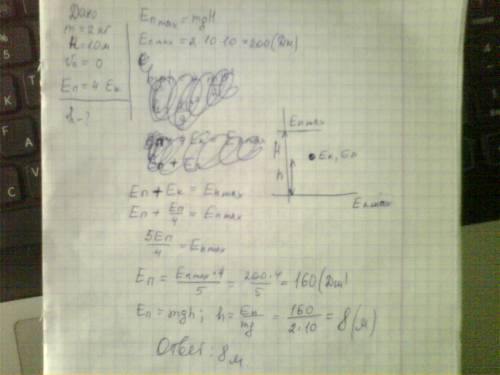 Дано
m = 2 кг
H = 10 м
v₀ = 0
Eп = 4 Eк
h - ?
Eп max = mgH
Eп max = 2·10·10 = 200 (Дж)
Eп max
H
h
Eк, Eп
Eп + Eк = Eп max
Eп + Eп/4 = Eп max
5Eп/4 = Eп max
Eп = Eп max·4/5 = 200·4/5 = 160 (Дж)
Eп = mgh; h = Eп/mg = 160/2·10 = 8 (м)
Ответ: 8 м